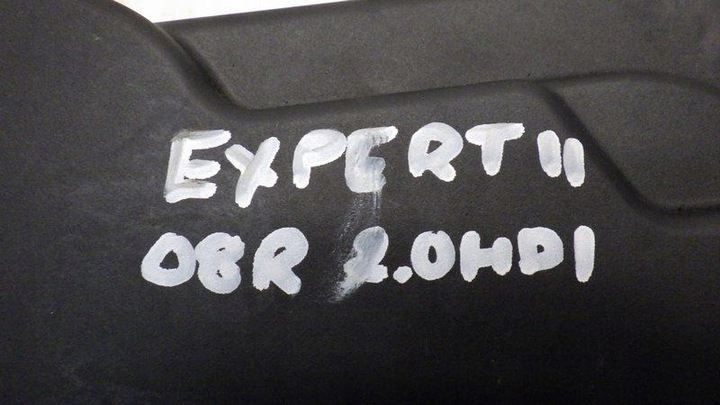 EXPERT II
08R 2.0HDI